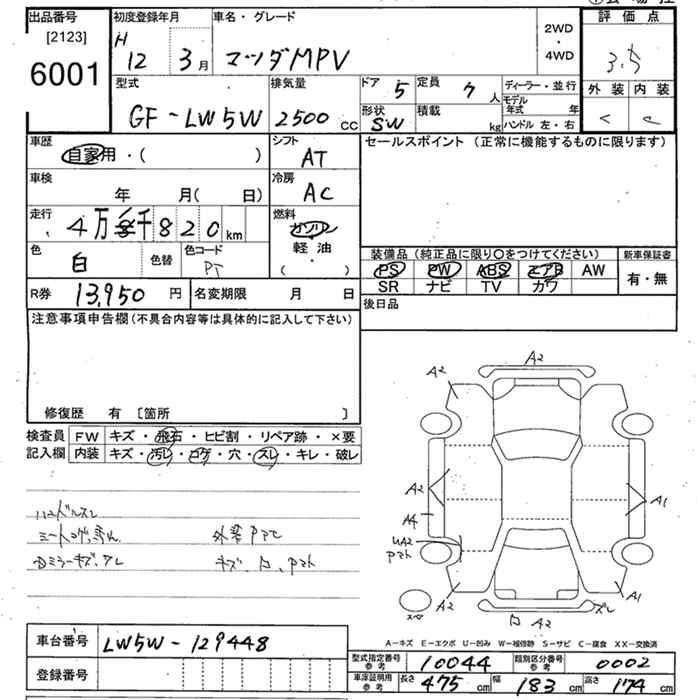 出品番号 初度登録年月 車名・グレード 2WD ・ 4WD 評価点
[2123]
6001 H 12 3月 マツダMPV 3.5
型式 排気量 ドア 5 定員 7 人 ディーラー・並行 外装 内装
GF-LW5W 2500 cc 形状 SW 積載 kg モデル年式 年 ハンドル 左・右 C C
車歴 自家用・( ) シフト AT セールスポイント (正常に機能するものに限ります)
車検 年 月( 日) 冷房 AC
走行 4万 千820km 燃料 ガソリン 軽油 ( ・ )
色 白 色替 色コード PT
装備品(純正品に限り〇をつけてください) 新車保証書
PS PW ABS エアB AW 有・無
SR ナビ TV カワ
R券 13,950 円 名変期限 月 日 後日品
注意事項申告欄(不具合内容等は具体的に記入して下さい)
修復歴 有 [箇所 ]
検査員 FW キズ・飛石・ヒビ割・リペア跡・×要
記入欄 内装 キズ・汚レ・コゲ・穴・スレ・キレ・破レ
ハンドルスレ
外装
キズ
A2 A2
A2 A1
A4
UA2
A2 A2 ズレ A1
A-キズ E-エクボ U-凹み W-補修跡 S-サビ C-腐食 XX-交換済
車台番号 LW5W-129448
型式指定番号 参考 10044 類別区分番号 参考 0002
登録番号
車庫証明用 参考 長さ 475 cm 幅 183 cm 高さ 174 cm